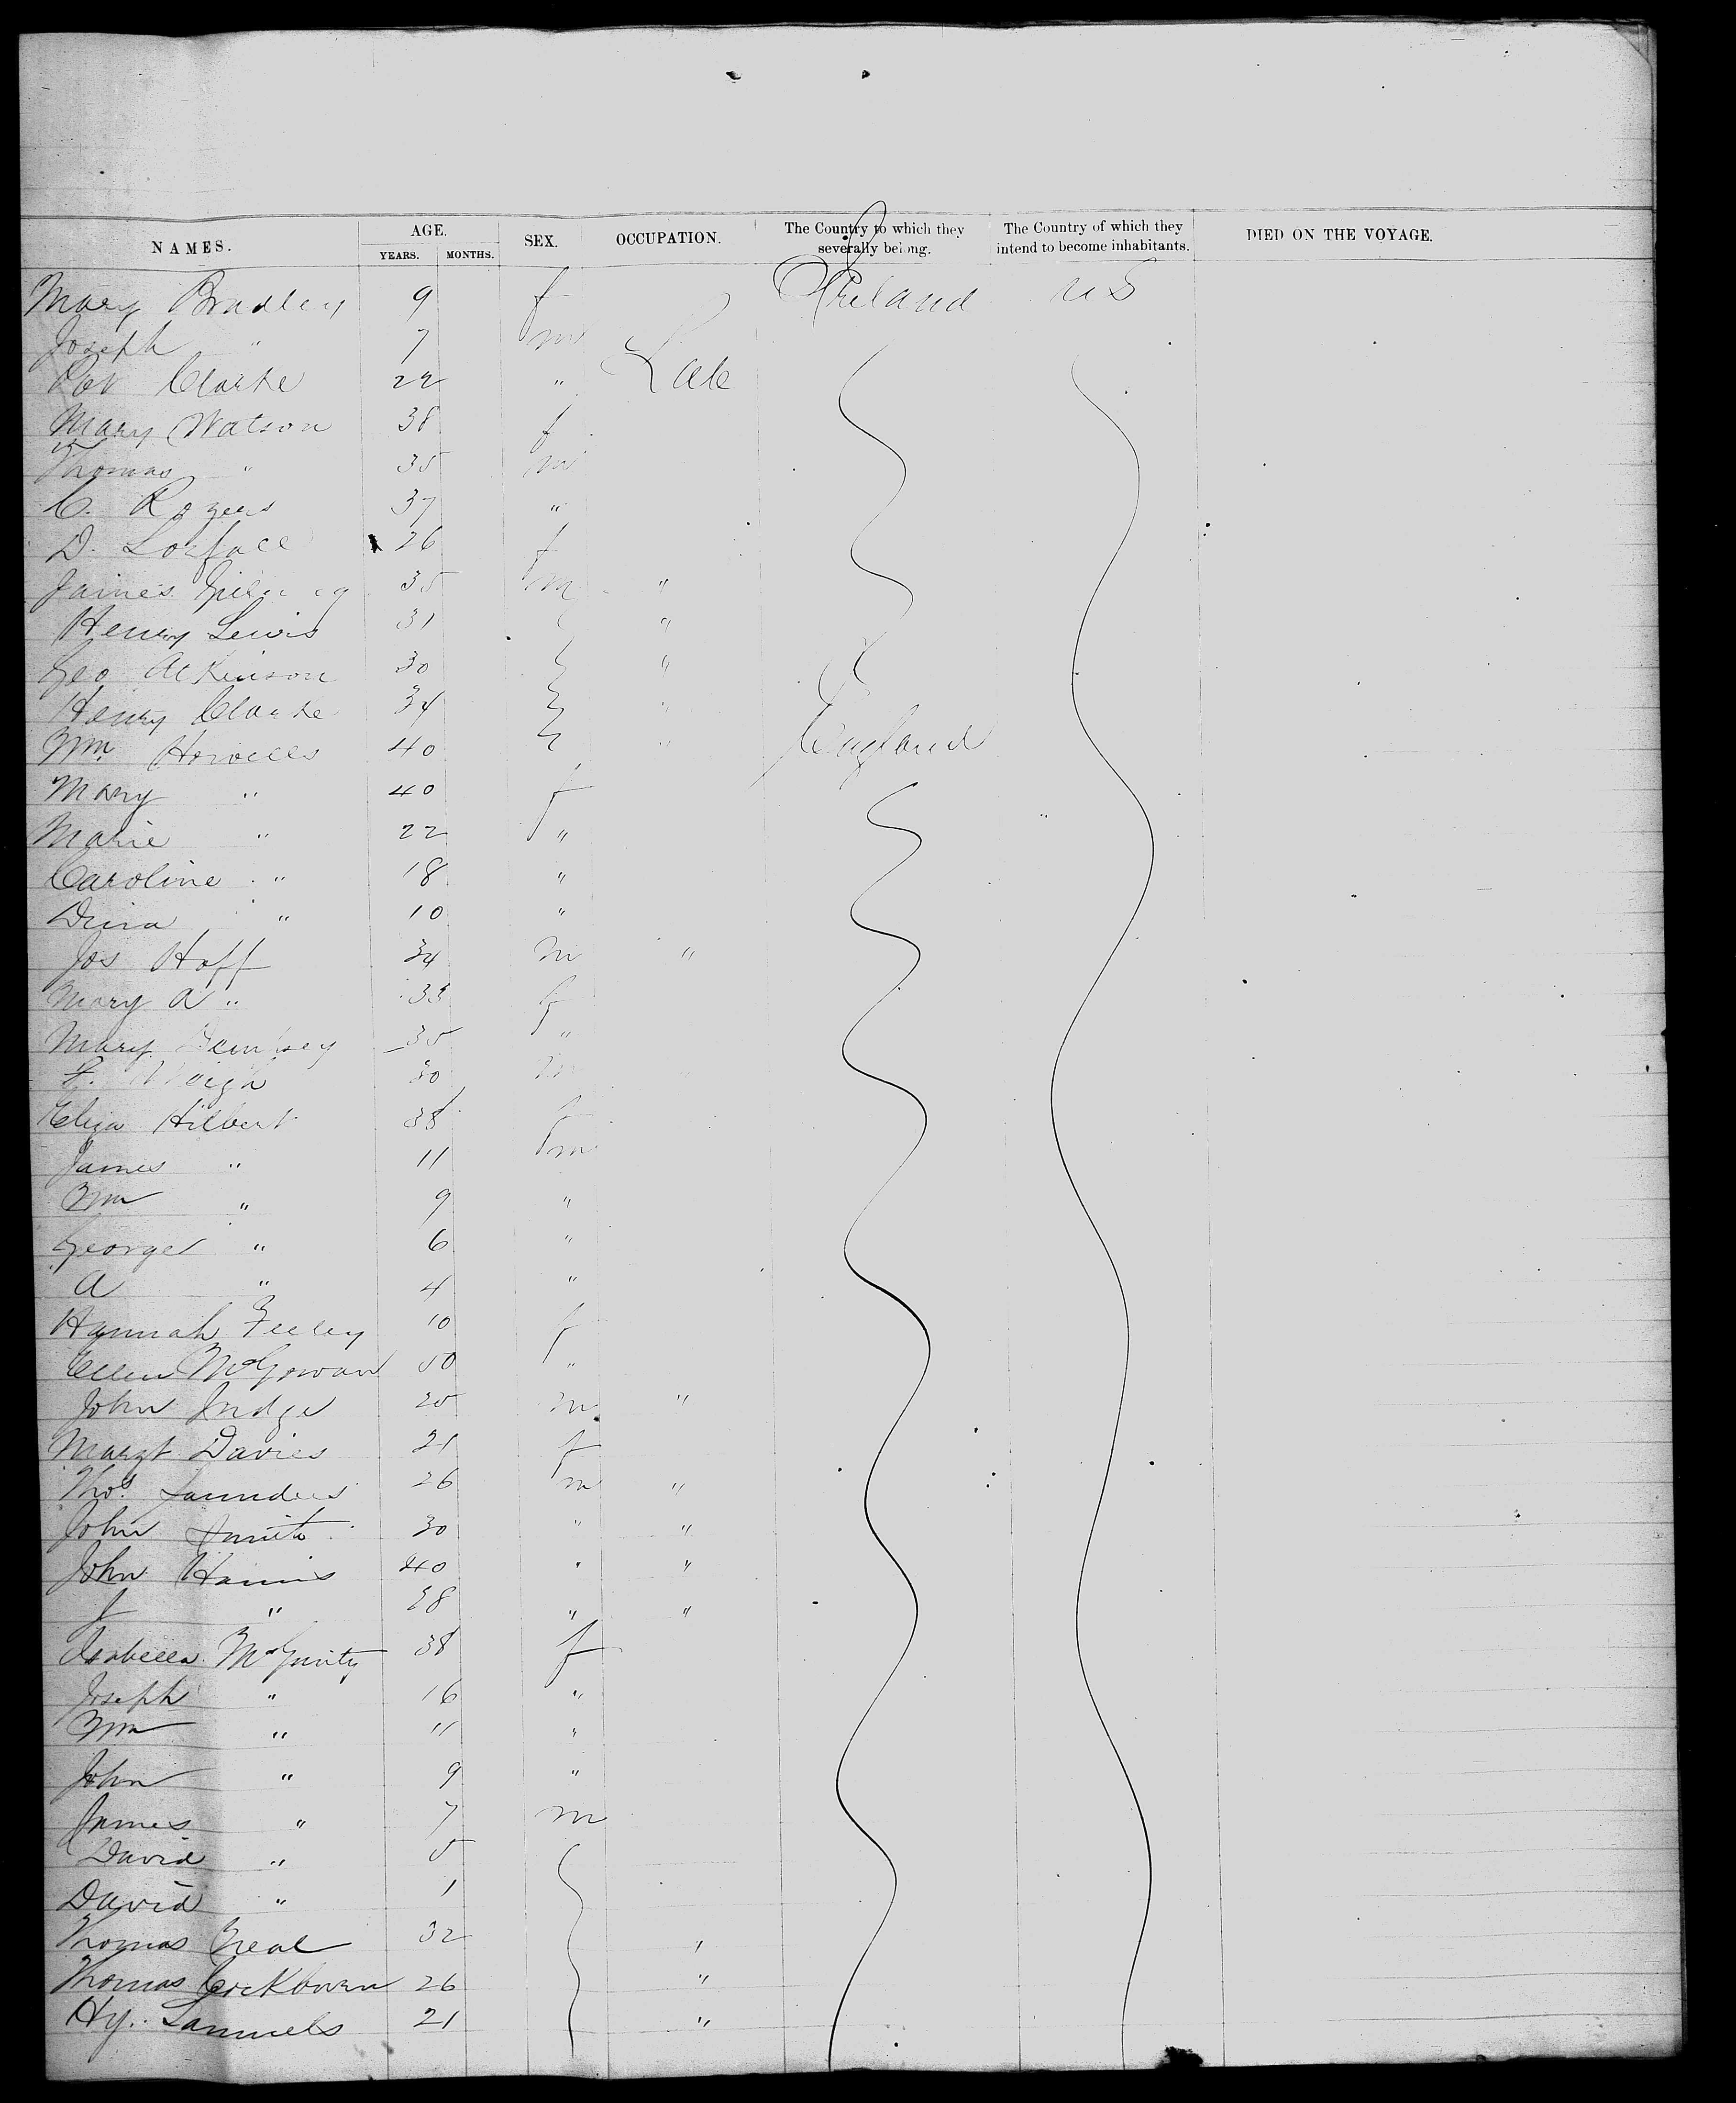 NAMES. AGE. SEX. OCCUPATION. The Country to which they severally belong. The Country of which they intend to become inhabitants. DIED ON THE VOYAGE.
YEARS. MONTHS.
Mary Bradley 9 f Ireland U S
Joseph " 7 m
Clarke 22 " Lab
Mary Watson 38 f
Thomas " 35 m
C. Rogers 37 "
D. 26 f
James 35 m "
Henry Lewis 31 "
Geo Atkinson 30 "
Henry Clarke 34 "
Wm Howells 40 " England
Mary " 40 f
Marie " 22 "
Caroline " 18 "
Dina " 10 "
Jos Hoff 34 m "
Mary A " 33 f
Mary 35 "
30 m
Eliza Hilbert 38 f
James " 11 m
Wm " 9 "
George " 6 "
A " 4 "
Hannah Feeley 10 f
Ellen McGowan 50 "
John Judge 25 m "
Margt Davies 21 f
Thos Saunders 26 m "
John Smith 30 " "
John Harris 40 " "
J " 28 " "
Isabella McGinity 38 f
Joseph " 16 "
Wm " 11 "
John " 9 "
James " 7 m
David " 5
David " 1
Thomas Neal 32 "
Thomas Cockburn 26 "
Hy. Samuels 21 "